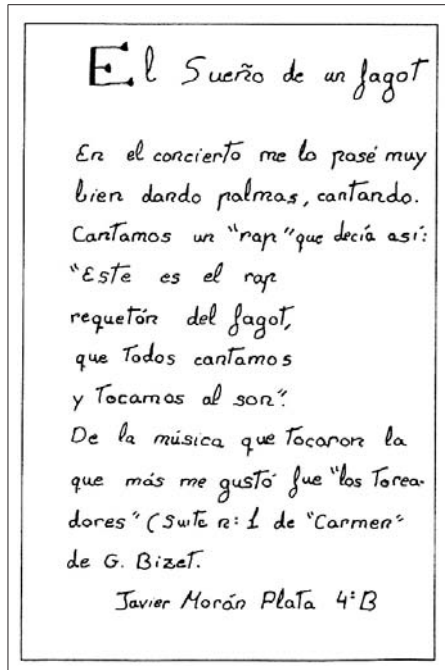 El Sueño de un fagot
En el concierto me lo pasé muy
bien dando palmas, cantando.
Cantamos un "rap" que decía así:
"Este es el rap
requetón del fagot,
que todos cantamos
y tocamos al son".
De la música que tocaron la
que más me gustó fue "los Torea-
dores" (Suite n: 1 de "Carmen"
de G. Bizet.
Javier Morán Plata 4ºB